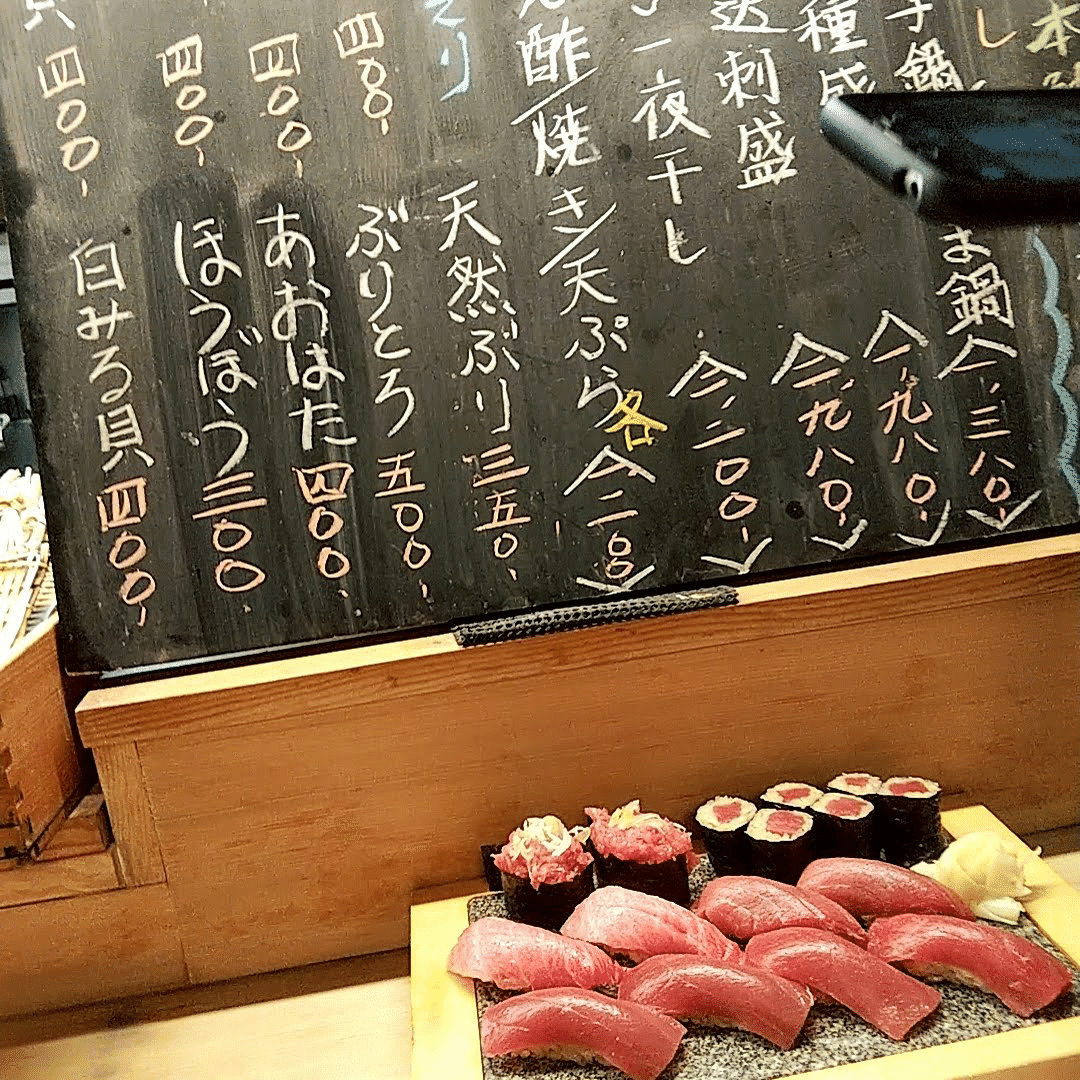 本
し
子鍋
お鍋
一、三八〇-
種盛
一、九八〇-
刺盛
一、九八〇-
一夜干し
一、二〇〇-
酢/焼き/天ぷら各
一二〇〇
天然ぶり三五〇-
四〇〇-
ぶりとろ五〇〇-
四〇〇-
あおはた四〇〇-
四〇〇-
ほうぼう三〇〇-
四〇〇-
白みる貝四〇〇-